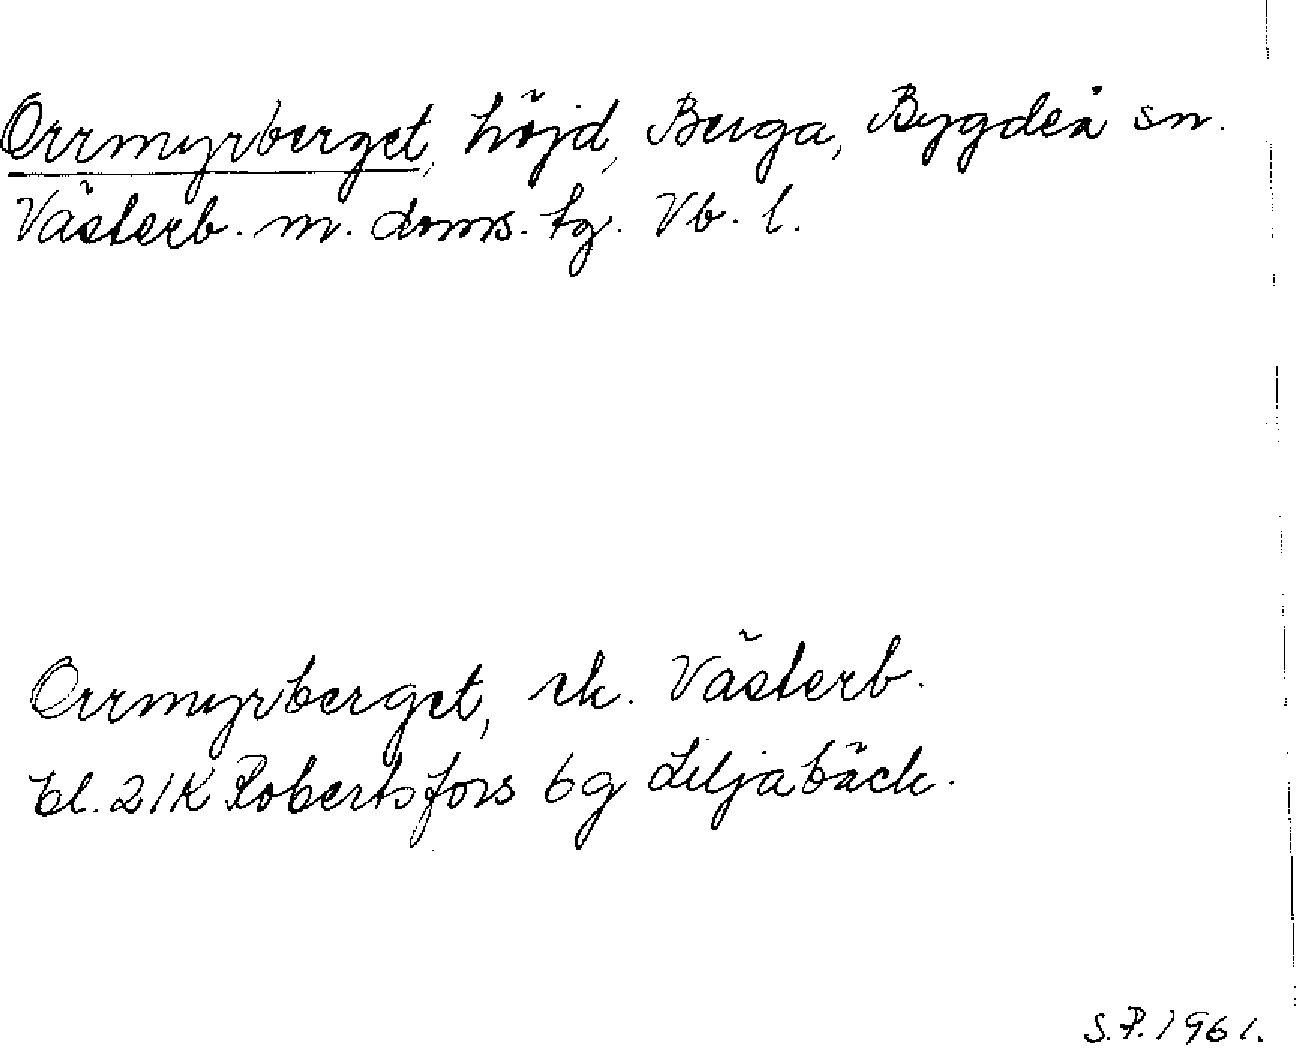 Orrmyrberget, höjd, Berga, Bygdeå sn.
Västerb. m. doms. tg. Vb. l.
Orrmyrberget, ek. Västerb.
bl. 21K Robertsfors 6g Liljabäck.
S.P. 1961.